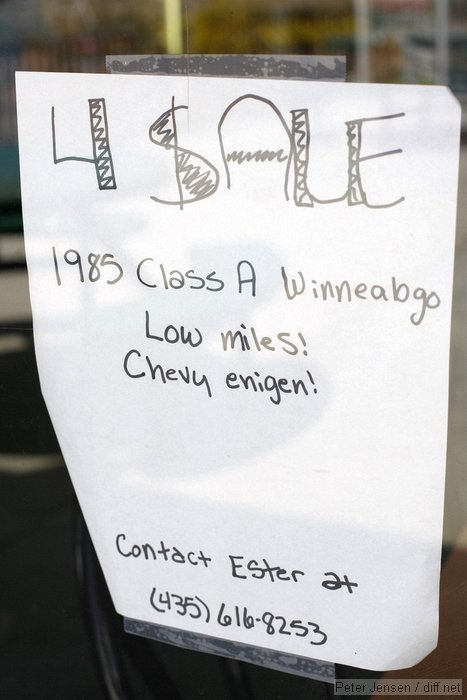 4 $ALE
1985 Class A Winneabgo
Low miles!
Chevy enigen!
Contact Ester at
(435) 616-8253
Peter Jensen / diff.net